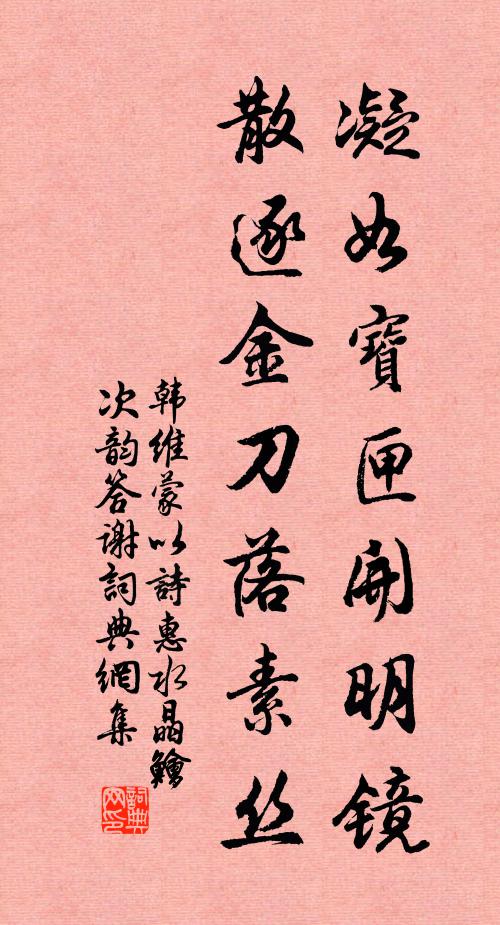 凝如寶匣開明镜
散逐金刀落素丝
韩維蒙以詩惠水晶鱠
次韵答谢詞典網集
詞典
网印